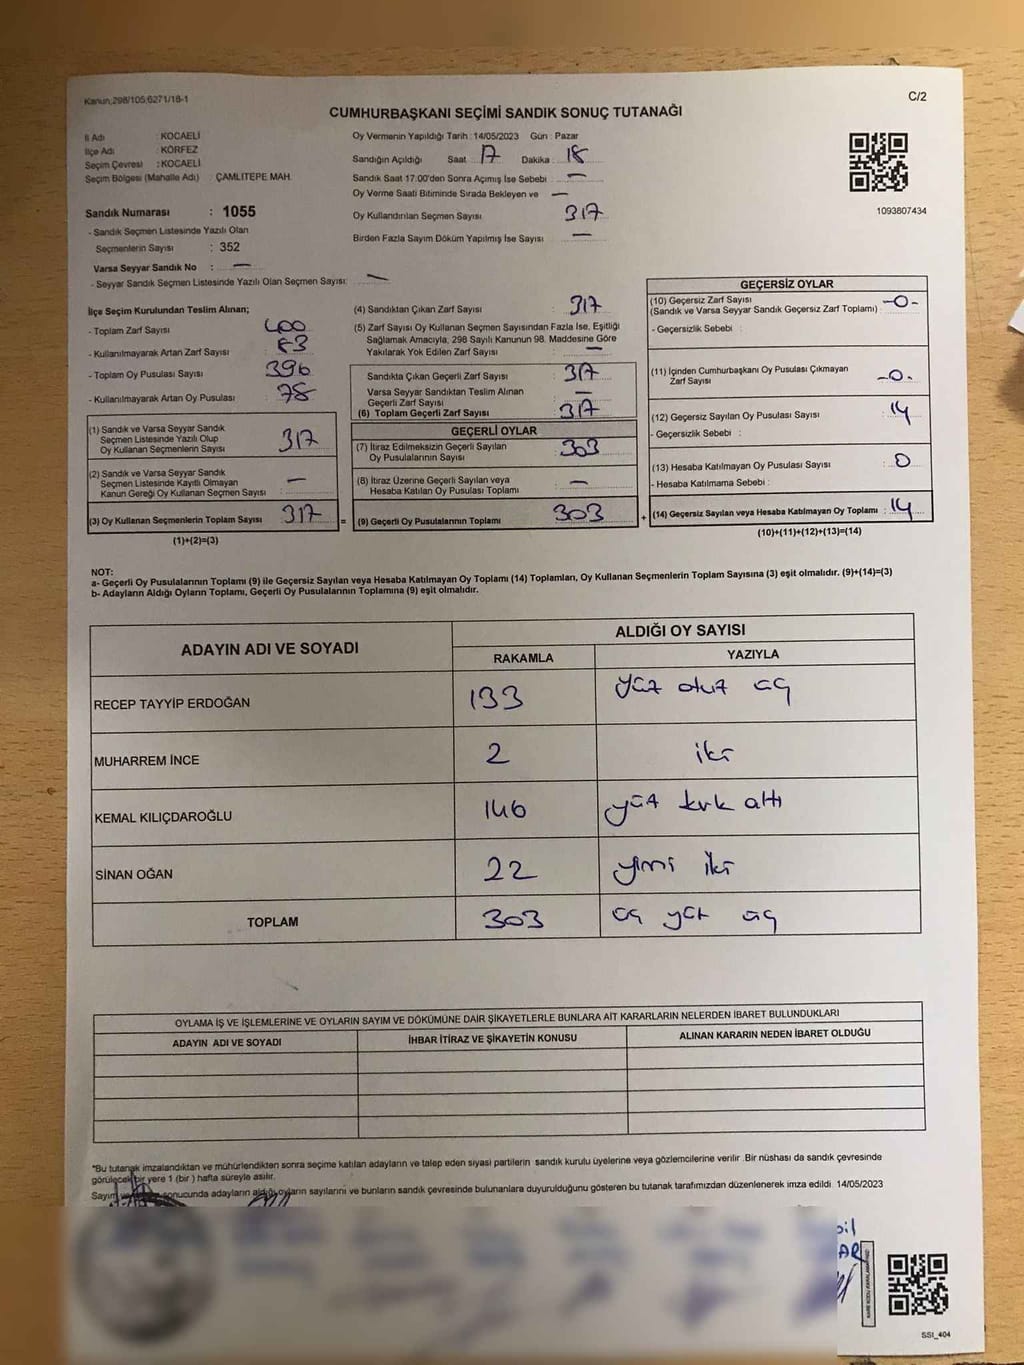 Kanun;298/105;6271/18-1
C/2
CUMHURBAŞKANI SEÇİMİ SANDIK SONUÇ TUTANAĞI
İl Adı : KOCAELİ
İlçe Adı : KÖRFEZ
Seçim Çevresi : KOCAELİ
Seçim Bölgesi (Mahalle Adı) : ÇAMLITEPE MAH.
Oy Vermenin Yapıldığı Tarih : 14/05/2023 Gün : Pazar
Sandığın Açıldığı Saat : 17 Dakika : 18
Sandık Saat 17:00'den Sonra Açımış İse Sebebi : —
Oy Verme Saati Bitiminde Sırada Bekleyen ve —
Oy Kullandırılan Seçmen Sayısı 317
Birden Fazla Sayım Döküm Yapılmış İse Sayısı —
1093807434
Sandık Numarası : 1055
- Sandık Seçmen Listesinde Yazılı Olan
Seçmenlerin Sayısı : 352
Varsa Seyyar Sandık No : —
- Seyyar Sandık Seçmen Listesinde Yazılı Olan Seçmen Sayısı: —
İlçe Seçim Kurulundan Teslim Alınan;
- Toplam Zarf Sayısı 400
- Kullanılmayarak Artan Zarf Sayısı 83
- Toplam Oy Pusulası Sayısı 396
- Kullanılmayarak Artan Oy Pusulası 78
(1) Sandık ve Varsa Seyyar Sandık
Seçmen Listesinde Yazılı Olup
Oy Kullanan Seçmenlerin Sayısı 317
(2) Sandık ve Varsa Seyyar Sandık
Seçmen Listesinde Kayıtlı Olmayan
Kanun Gereği Oy Kullanan Seçmen Sayısı —
(3) Oy Kullanan Seçmenlerin Toplam Sayısı 317 =
(1)+(2)=(3)
(4) Sandıktan Çıkan Zarf Sayısı : 317
(5) Zarf Sayısı Oy Kullanan Seçmen Sayısından Fazla İse, Eşitliği
Sağlamak Amacıyla, 298 Sayılı Kanunun 98. Maddesine Göre
Yakılarak Yok Edilen Zarf Sayısı —
Sandıkta Çıkan Geçerli Zarf Sayısı : 317
Varsa Seyyar Sandıktan Teslim Alınan
Geçerli Zarf Sayısı —
(6) Toplam Geçerli Zarf Sayısı : 317
GEÇERLİ OYLAR
(7) İtiraz Edilmeksizin Geçerli Sayılan
Oy Pusulalarının Sayısı : 303
(8) İtiraz Üzerine Geçerli Sayılan veya
Hesaba Katılan Oy Pusulası Toplamı —
(9) Geçerli Oy Pusulalarının Toplamı 303 +
GEÇERSİZ OYLAR
(10) Geçersiz Zarf Sayısı -0-
(Sandık ve Varsa Seyyar Sandık Geçersiz Zarf Toplamı) :
- Geçersizlik Sebebi :
(11) İçinden Cumhurbaşkanı Oy Pusulası Çıkmayan
Zarf Sayısı -0-
(12) Geçersiz Sayılan Oy Pusulası Sayısı : 14
- Geçersizlik Sebebi :
(13) Hesaba Katılmayan Oy Pusulası Sayısı : 0
- Hesaba Katılmama Sebebi :
(14) Geçersiz Sayılan veya Hesaba Katılmayan Oy Toplamı : 14
(10)+(11)+(12)+(13)=(14)
NOT:
a- Geçerli Oy Pusulalarının Toplamı (9) ile Geçersiz Sayılan veya Hesaba Katılmayan Oy Toplamı (14) Toplamları, Oy Kullanan Seçmenlerin Toplam Sayısına (3) eşit olmalıdır. (9)+(14)=(3)
b- Adayların Aldığı Oyların Toplamı, Geçerli Oy Pusulalarının Toplamına (9) eşit olmalıdır.
ADAYIN ADI VE SOYADI
ALDIĞI OY SAYISI
RAKAMLA YAZIYLA
RECEP TAYYİP ERDOĞAN 133 yüz otuz üç
MUHARREM İNCE 2 iki
KEMAL KILIÇDAROĞLU 146 yüz kırk altı
SİNAN OĞAN 22 yirmi iki
TOPLAM 303 üç yüz üç
OYLAMA İŞ VE İŞLEMLERİNE VE OYLARIN SAYIM VE DÖKÜMÜNE DAİR ŞİKAYETLERLE BUNLARA AİT KARARLARIN NELERDEN İBARET BULUNDUKLARI
ADAYIN ADI VE SOYADI İHBAR İTİRAZ VE ŞİKAYETİN KONUSU ALINAN KARARIN NEDEN İBARET OLDUĞU
"Bu tutanak imzalandıktan ve mühürlendikten sonra seçime katılan adayların ve talep eden siyasi partilerin sandık kurulu üyelerine veya gözlemcilerine verilir .Bir nüshası da sandık çevresinde
görülecek bir yere 1 (bir ) hafta süreyle asılır.
sonucunda adayların aldığı oyların sayılarını ve bunların sandık çevresinde bulunanlara duyurulduğunu gösteren bu tutanak tarafımızdan düzenlenerek imza edildi. 14/05/2023
SSI_404